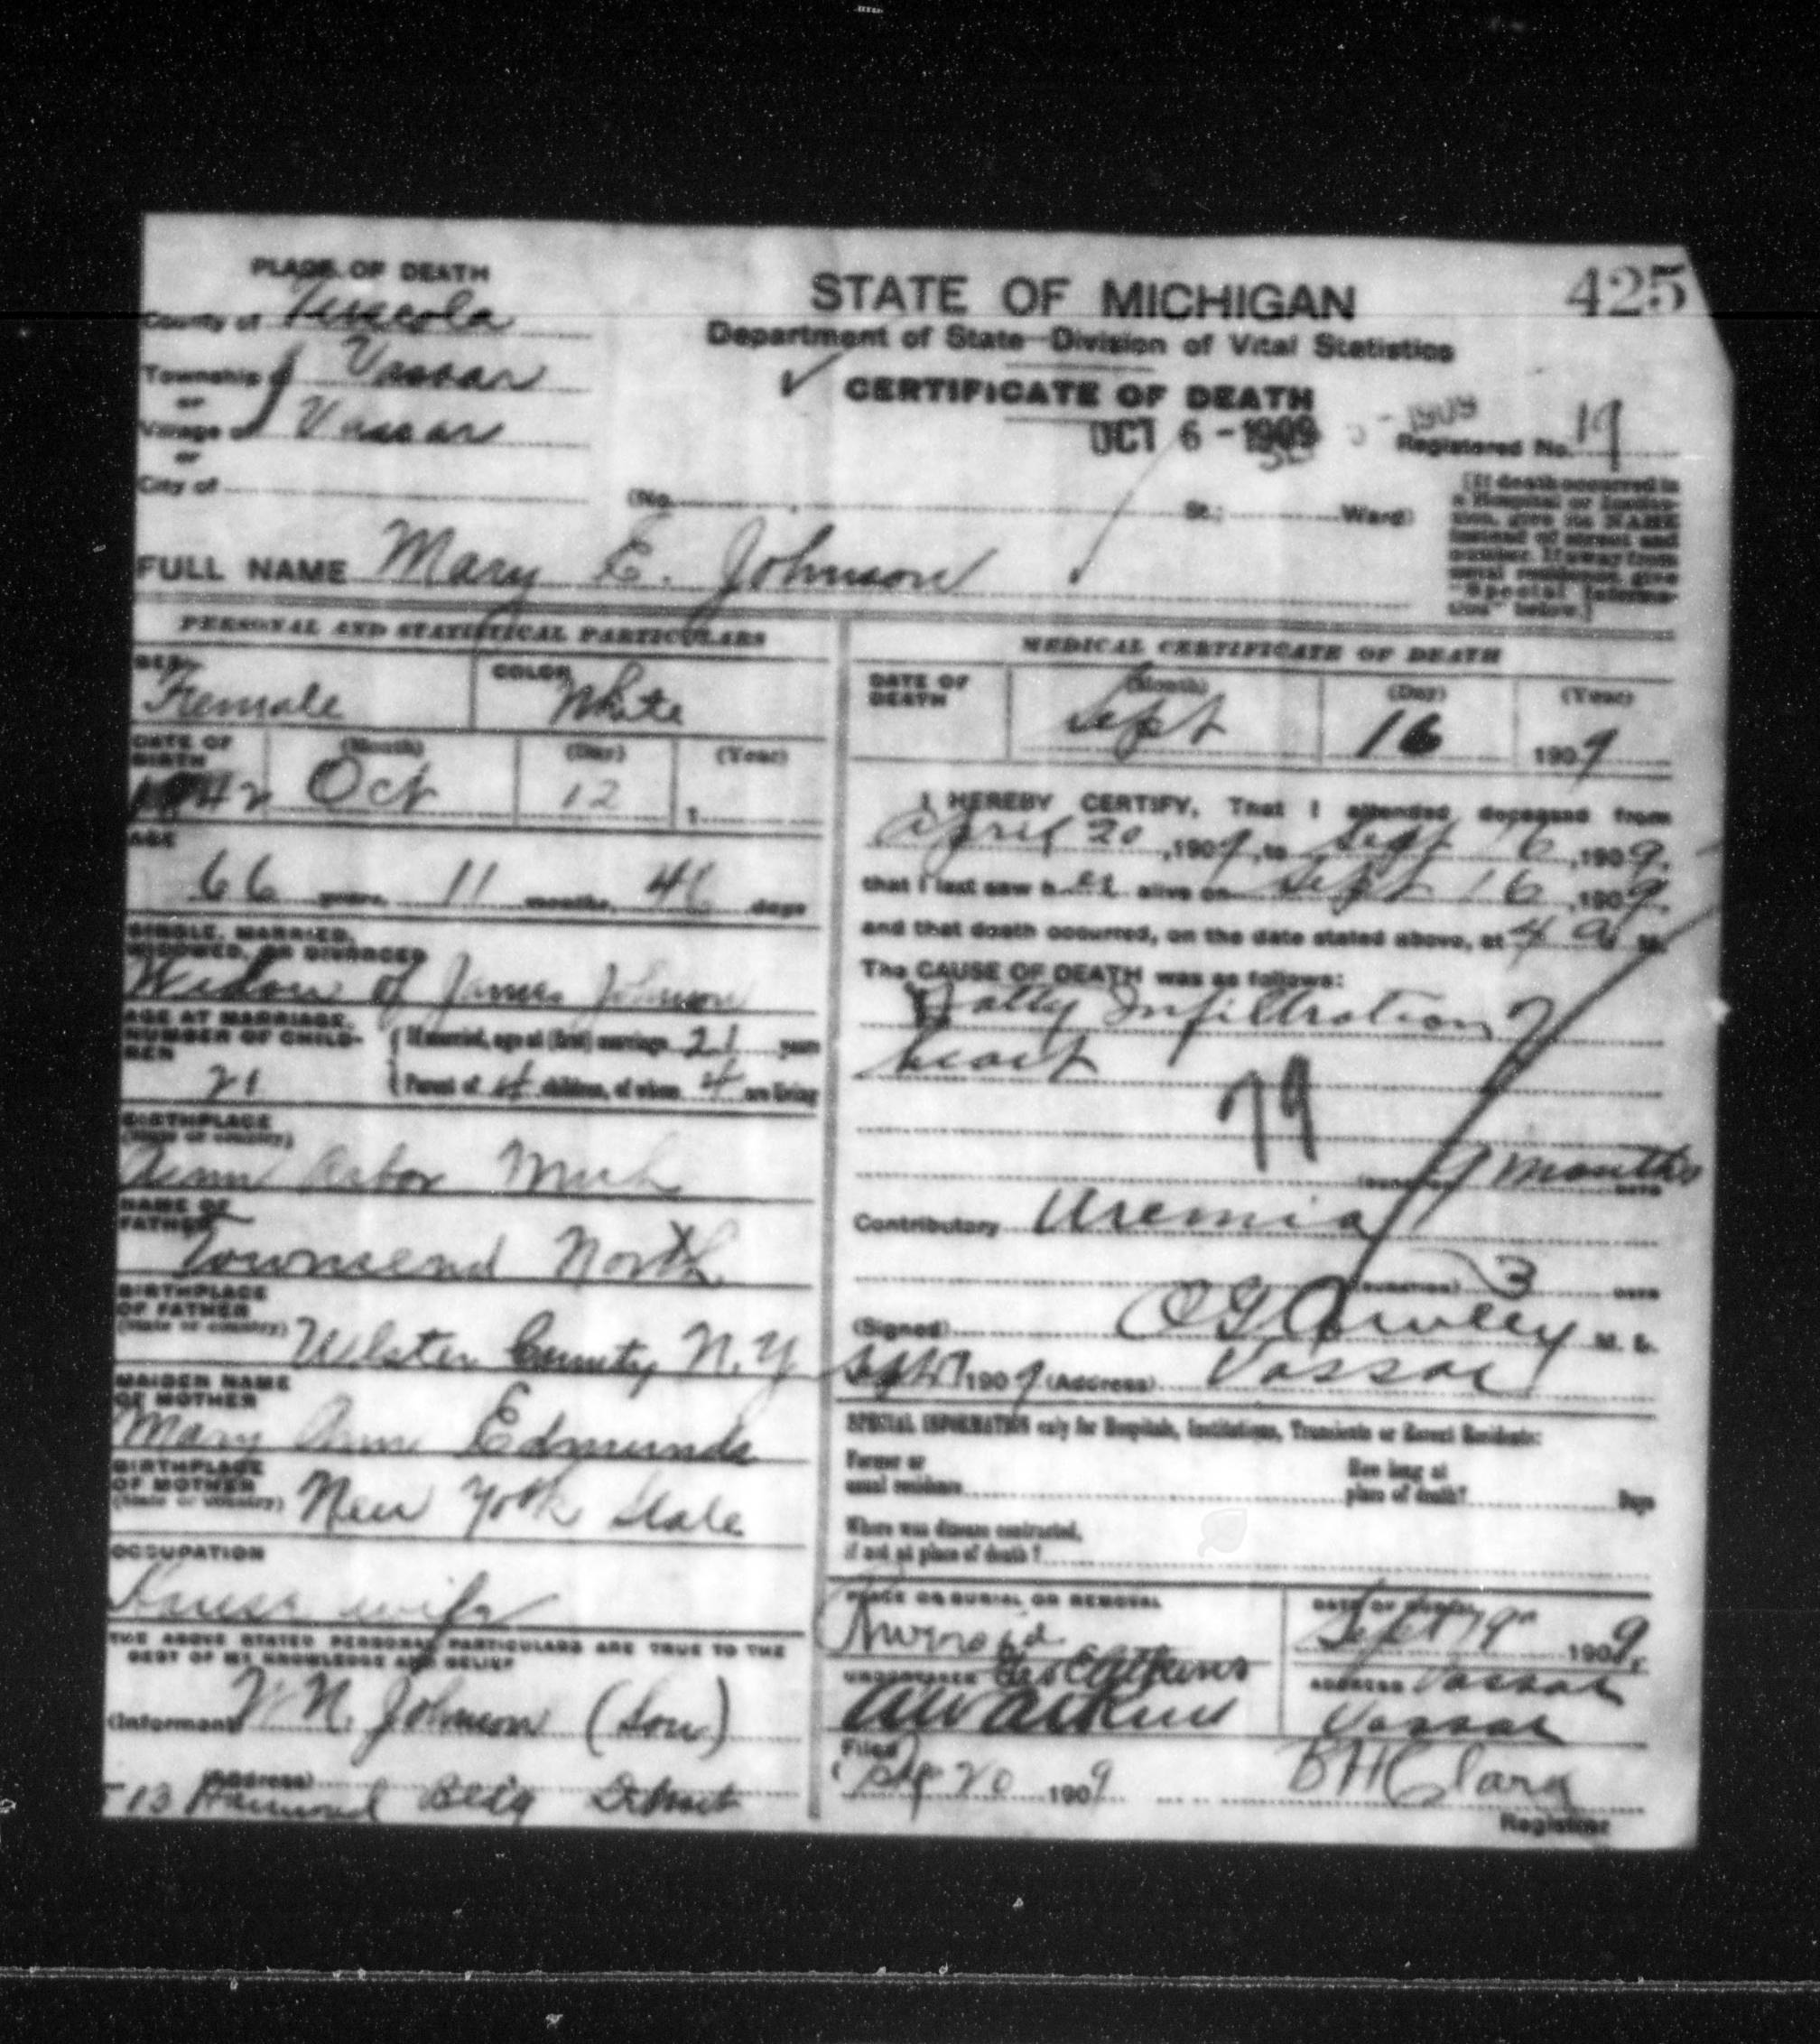 425
PLACE OF DEATH
County of Tuscola
Township Vassar
or
Village of Vassar
or
City of
STATE OF MICHIGAN
Department of State—Division of Vital Statistics
CERTIFICATE OF DEATH
OCT 6 - 1909
Registered No. 19
(No. St.; Ward)
[If death occurred in a Hospital or Institution, give its NAME instead of street and number. If away from usual residence, give "Special Information" below.]
FULL NAME Mary E. Johnson
PERSONAL AND STATISTICAL PARTICULARS
SEX Female
COLOR White
DATE OF BIRTH
(Month) (Day) (Year)
1842 Oct 12 1
AGE
66 years, 11 months, 4 days
SINGLE, MARRIED,
WIDOWED, OR DIVORCED
Widow of James Johnson
AGE AT MARRIAGE,
NUMBER OF CHILDREN
21
If married, age at (first) marriage 21 years
Parent of 4 children, of whom 4 are living
BIRTHPLACE
(State or country)
Ann Arbor Mich
NAME OF
FATHER
Townsend North
BIRTHPLACE
OF FATHER
(State or country) Ulster County N.Y
MAIDEN NAME
OF MOTHER
Mary Ann Edmunds
BIRTHPLACE
OF MOTHER
(State or country) New York State
OCCUPATION
House wife
THE ABOVE STATED PERSONAL PARTICULARS ARE TRUE TO THE
BEST OF MY KNOWLEDGE AND BELIEF
(Informant) N. Johnson (Son)
(Address)
Bldg Detroit
MEDICAL CERTIFICATE OF DEATH
DATE OF DEATH
(Month) (Day) (Year)
Sept 16 1909
I HEREBY CERTIFY, That I attended deceased from
April 20, 1909, to Sept 16, 1909.
that I last saw her alive on Sept 16, 1909.
and that death occurred, on the date stated above, at 4 a M.
The CAUSE OF DEATH was as follows:
Fatty Infiltration of
heart
79
(DURATION) 9 months DAYS
Contributory Uremia
(DURATION) 3 DAYS
(Signed) M. D.
Sept 1909 (Address) Vassar
SPECIAL INFORMATION only for Hospitals, Institutions, Transients or Recent Residents:
Former or
usual residence
How long at
place of death? Days
Where was disease contracted,
if not at place of death?
PLACE OR BURIAL OR REMOVAL
DATE OF BURIAL
Sept 19 1909.
UNDERTAKER Geo C Atkins
AW Atkins
ADDRESS Vassar
Vassar
Filed
Sep 20 1909
Registrar